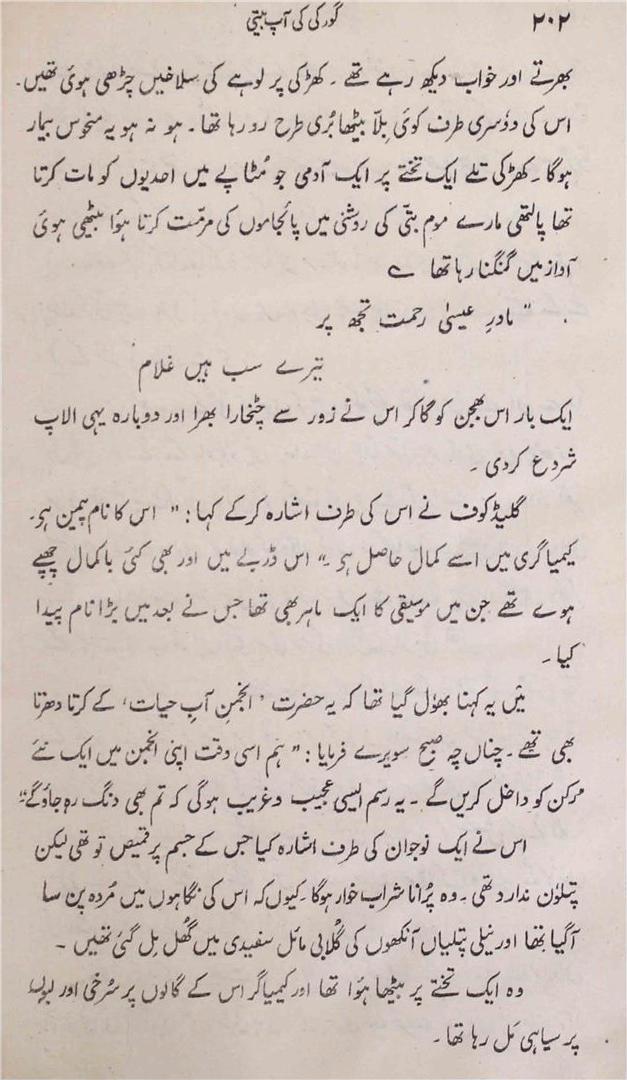 ۲۰۲
گورکی کی آپ بیتی
بھرتے اور خواب دیکھ رہے تھے ۔ کھڑکی پر لوہے کی سلاخیں چڑھی ہوئی تھیں۔
اس کی دوٗسری طرف کوئی بِلّا بیٹھا بُری طرح رو رہا تھا ۔ ہو نہ ہو یہ منحوس بیمار
ہوگا ۔ کھڑکی تلے ایک تختے پر ایک آدمی جو مُٹاپے میں احدیوں کو مات کرتا
تھا پالتھی مارے موم بتّی کی روشنی میں پائجاموں کی مرمّت کرتا ہؤا بیٹھی ہوئی
آواز میں گنگنا رہا تھا ؎
" مادرِ عیسیٰ رحمت تجھ پر
تیرے سب ہیں غلام
ایک بار اس بھجن کو گا کر اس نے زور سے چٹخارا بھرا اور دوبارہ یہی الاپ
شروع کردی ۔
گلیڈکوف نے اس کی طرف اشارہ کرکے کہا : " اس کا نام پیمن ہی۔
کیمیاگری میں اسے کمال حاصل ہی ۔" اس ڈربے میں اور بھی کئی باکمال چھپے
ہوے تھے جن میں موسیقی کا ایک ماہر بھی تھا جس نے بعد میں بڑا نام پیدا
کیا ۔
مَیں یہ کہنا بھوٗل گیا تھا کہ یہ حضرت ' انجمنِ آبِ حیات، کے کرتا دھرتا
بھی تھے ۔ چناں چہ صبح سویرے فرمایا : " ہم اسی وقت اپنی انجمن میں ایک نئے
رُکن کو داخل کریں گے ۔ یہ رسم ایسی عجیب و غریب ہوگی کہ تم بھی دنگ رہ جاؤگے"
اس نے ایک نوجوان کی طرف اشارہ کیا جس کے جسم پر قمیص تو تھی لیکن
پتلوٗن ندارد تھی ۔ وہ پُرانا شراب خوار ہوگا ۔ کیوں کہ اس کی نگاہوں میں مُردہ پن سا
آگیا تھا اور نیلی پتلیاں آنکھوں کی گُلابی مائل سفیدی میں گھُل مِل گئی تھیں ۔
وہ ایک تختے پر بیٹھا ہؤا تھا اور کیمیاگر اس کے گالوں پر سُرخی اور لبوں
پر سیاہی مَل رہا تھا ۔